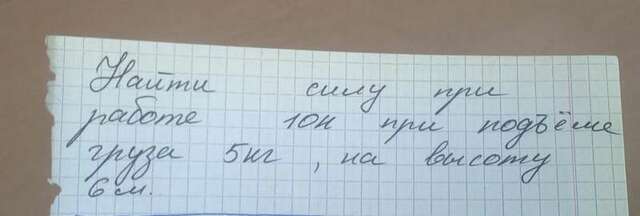 Найти силу при
работе 10н при подъёме
груза 5кг, на высоту
6м.